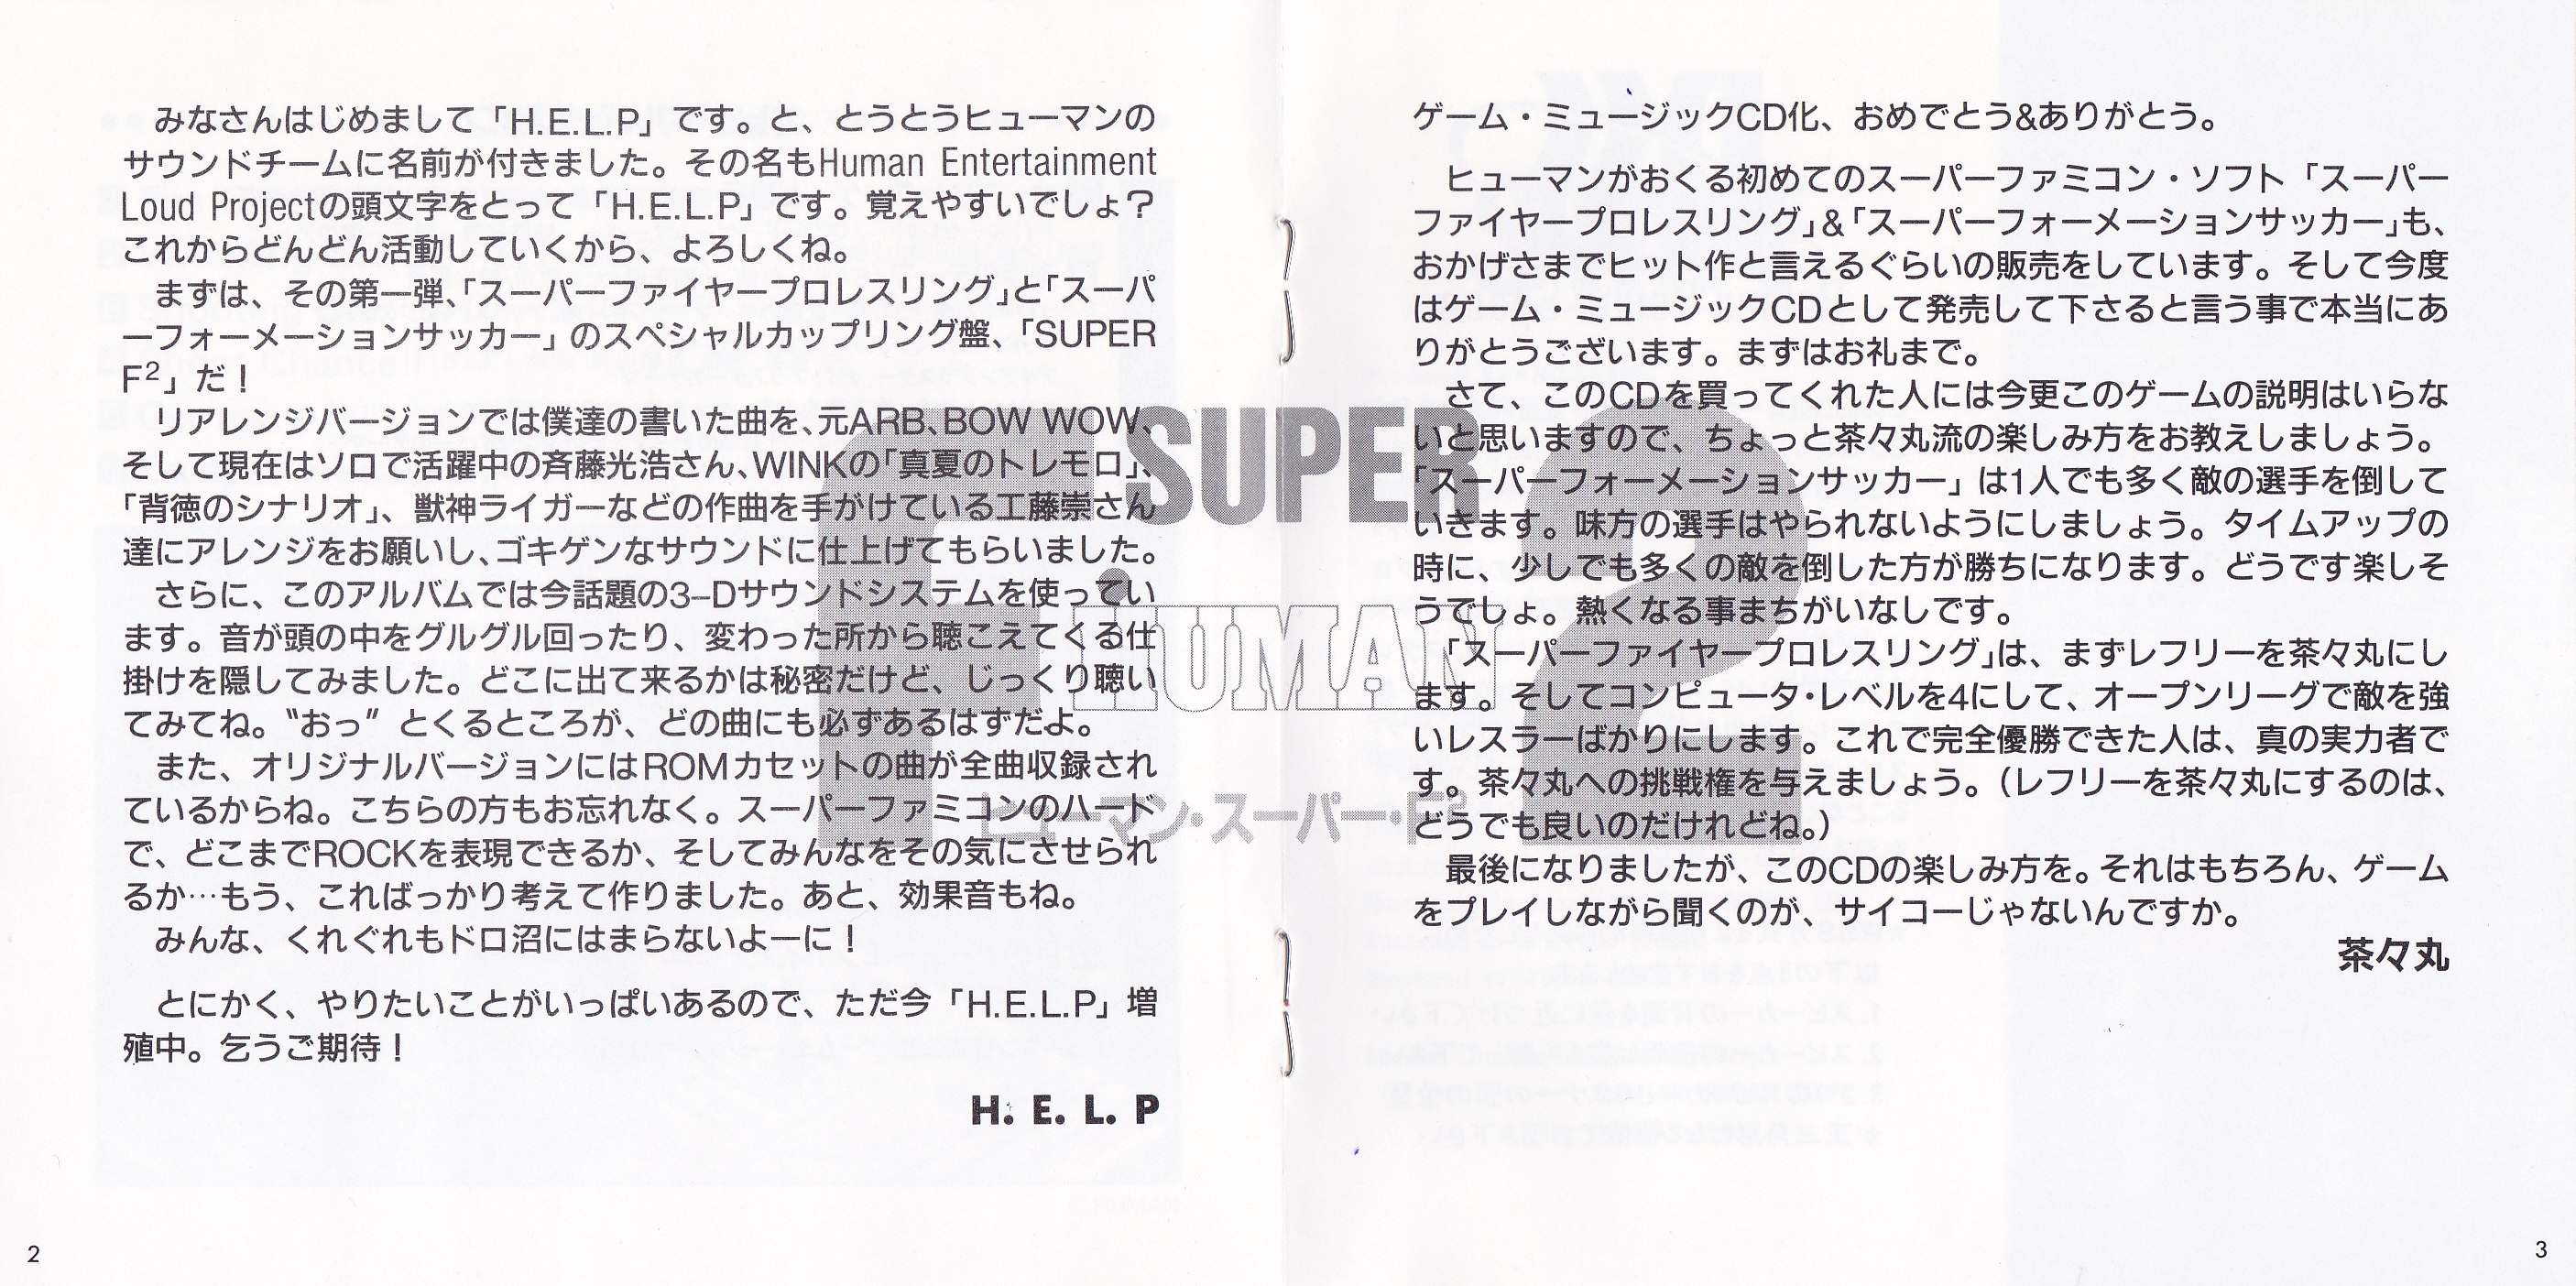 みなさんはじめまして「H.E.L.P」です。と、とうとうヒューマンの
サウンドチームに名前が付きました。その名もHuman Entertainment
Loud Projectの頭文字をとって「H.E.L.P」です。覚えやすいでしょ？
これからどんどん活動していくから、よろしくね。
まずは、その第一弾、「スーパーファイヤープロレスリング」と「スーパ
ーフォーメーションサッカー」のスペシャルカップリング盤、「SUPER
F²」だ！
リアレンジバージョンでは僕達の書いた曲を、元ARB、BOW WOW、
そして現在はソロで活躍中の斉藤光浩さん、WINKの「真夏のトレモロ」、
「背徳のシナリオ」、獣神ライガーなどの作曲を手がけている工藤崇さん
達にアレンジをお願いし、ゴキゲンなサウンドに仕上げてもらいました。
さらに、このアルバムでは今話題の3–Dサウンドシステムを使ってい
ます。音が頭の中をグルグル回ったり、変わった所から聴こえてくる仕
掛けを隠してみました。どこに出て来るかは秘密だけど、じっくり聴い
てみてね。〝おっ〞とくるところが、どの曲にも必ずあるはずだよ。
また、オリジナルバージョンにはROMカセットの曲が全曲収録され
ているからね。こちらの方もお忘れなく。スーパーファミコンのハード
で、どこまでROCKを表現できるか、そしてみんなをその気にさせられ
るか…もう、こればっかり考えて作りました。あと、効果音もね。
みんな、くれぐれもドロ沼にはまらないよーに！
とにかく、やりたいことがいっぱいあるので、ただ今「H.E.L.P」増
殖中。乞うご期待！
H. E. L. P
2
SUPER
F2
HUMAN
ヒューマン・スーパー・F²
ゲーム・ミュージックCD化、おめでとう&ありがとう。
ヒューマンがおくる初めてのスーパーファミコン・ソフト「スーパー
ファイヤープロレスリング」&「スーパーフォーメーションサッカー」も、
おかげさまでヒット作と言えるぐらいの販売をしています。そして今度
はゲーム・ミュージックCDとして発売して下さると言う事で本当にあ
りがとうございます。まずはお礼まで。
さて、このCDを買ってくれた人には今更このゲームの説明はいらな
いと思いますので、ちょっと茶々丸流の楽しみ方をお教えしましょう。
「スーパーフォーメーションサッカー」は1人でも多く敵の選手を倒して
いきます。味方の選手はやられないようにしましょう。タイムアップの
時に、少しでも多くの敵を倒した方が勝ちになります。どうです楽しそ
うでしょ。熱くなる事まちがいなしです。
「スーパーファイヤープロレスリング」は、まずレフリーを茶々丸にし
ます。そしてコンピュータ・レベルを4にして、オープンリーグで敵を強
いレスラーばかりにします。これで完全優勝できた人は、真の実力者で
す。茶々丸への挑戦権を与えましょう。（レフリーを茶々丸にするのは、
どうでも良いのだけれどね。）
最後になりましたが、このCDの楽しみ方を。それはもちろん、ゲーム
をプレイしながら聞くのが、サイコーじゃないんですか。
茶々丸
3